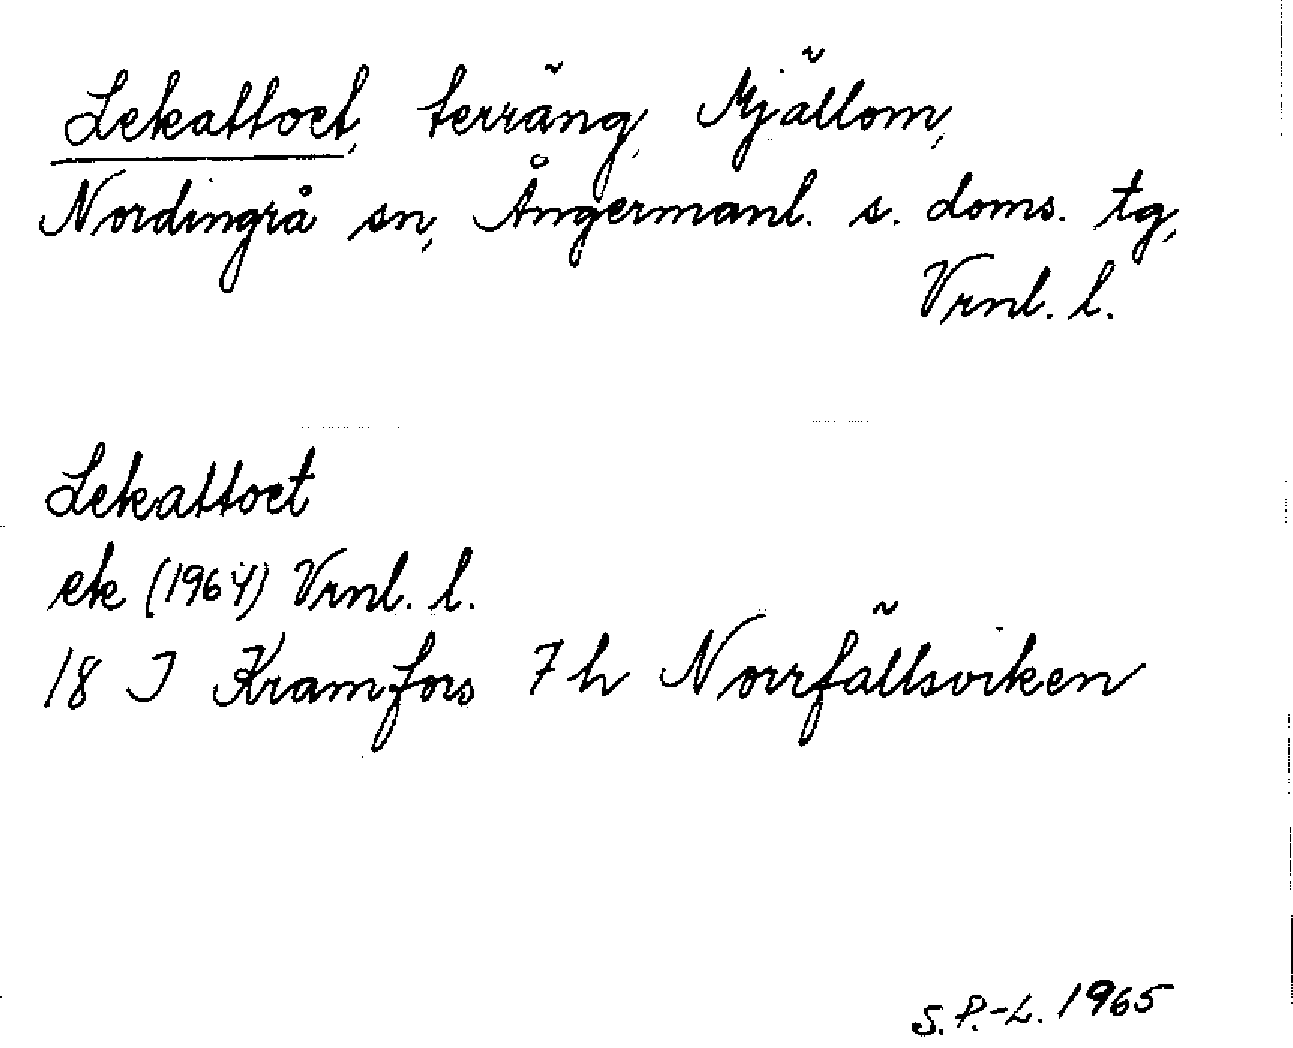 Lekattoet, terräng, Mjällom,
Nordingrå sn, Ångermanl. s. doms. tg,
Vrnl. l.
Lekattoet
ek (1964) Vrnl. l.
18 I Kramfors 7h Norrfällsviken
S. P.-L. 1965